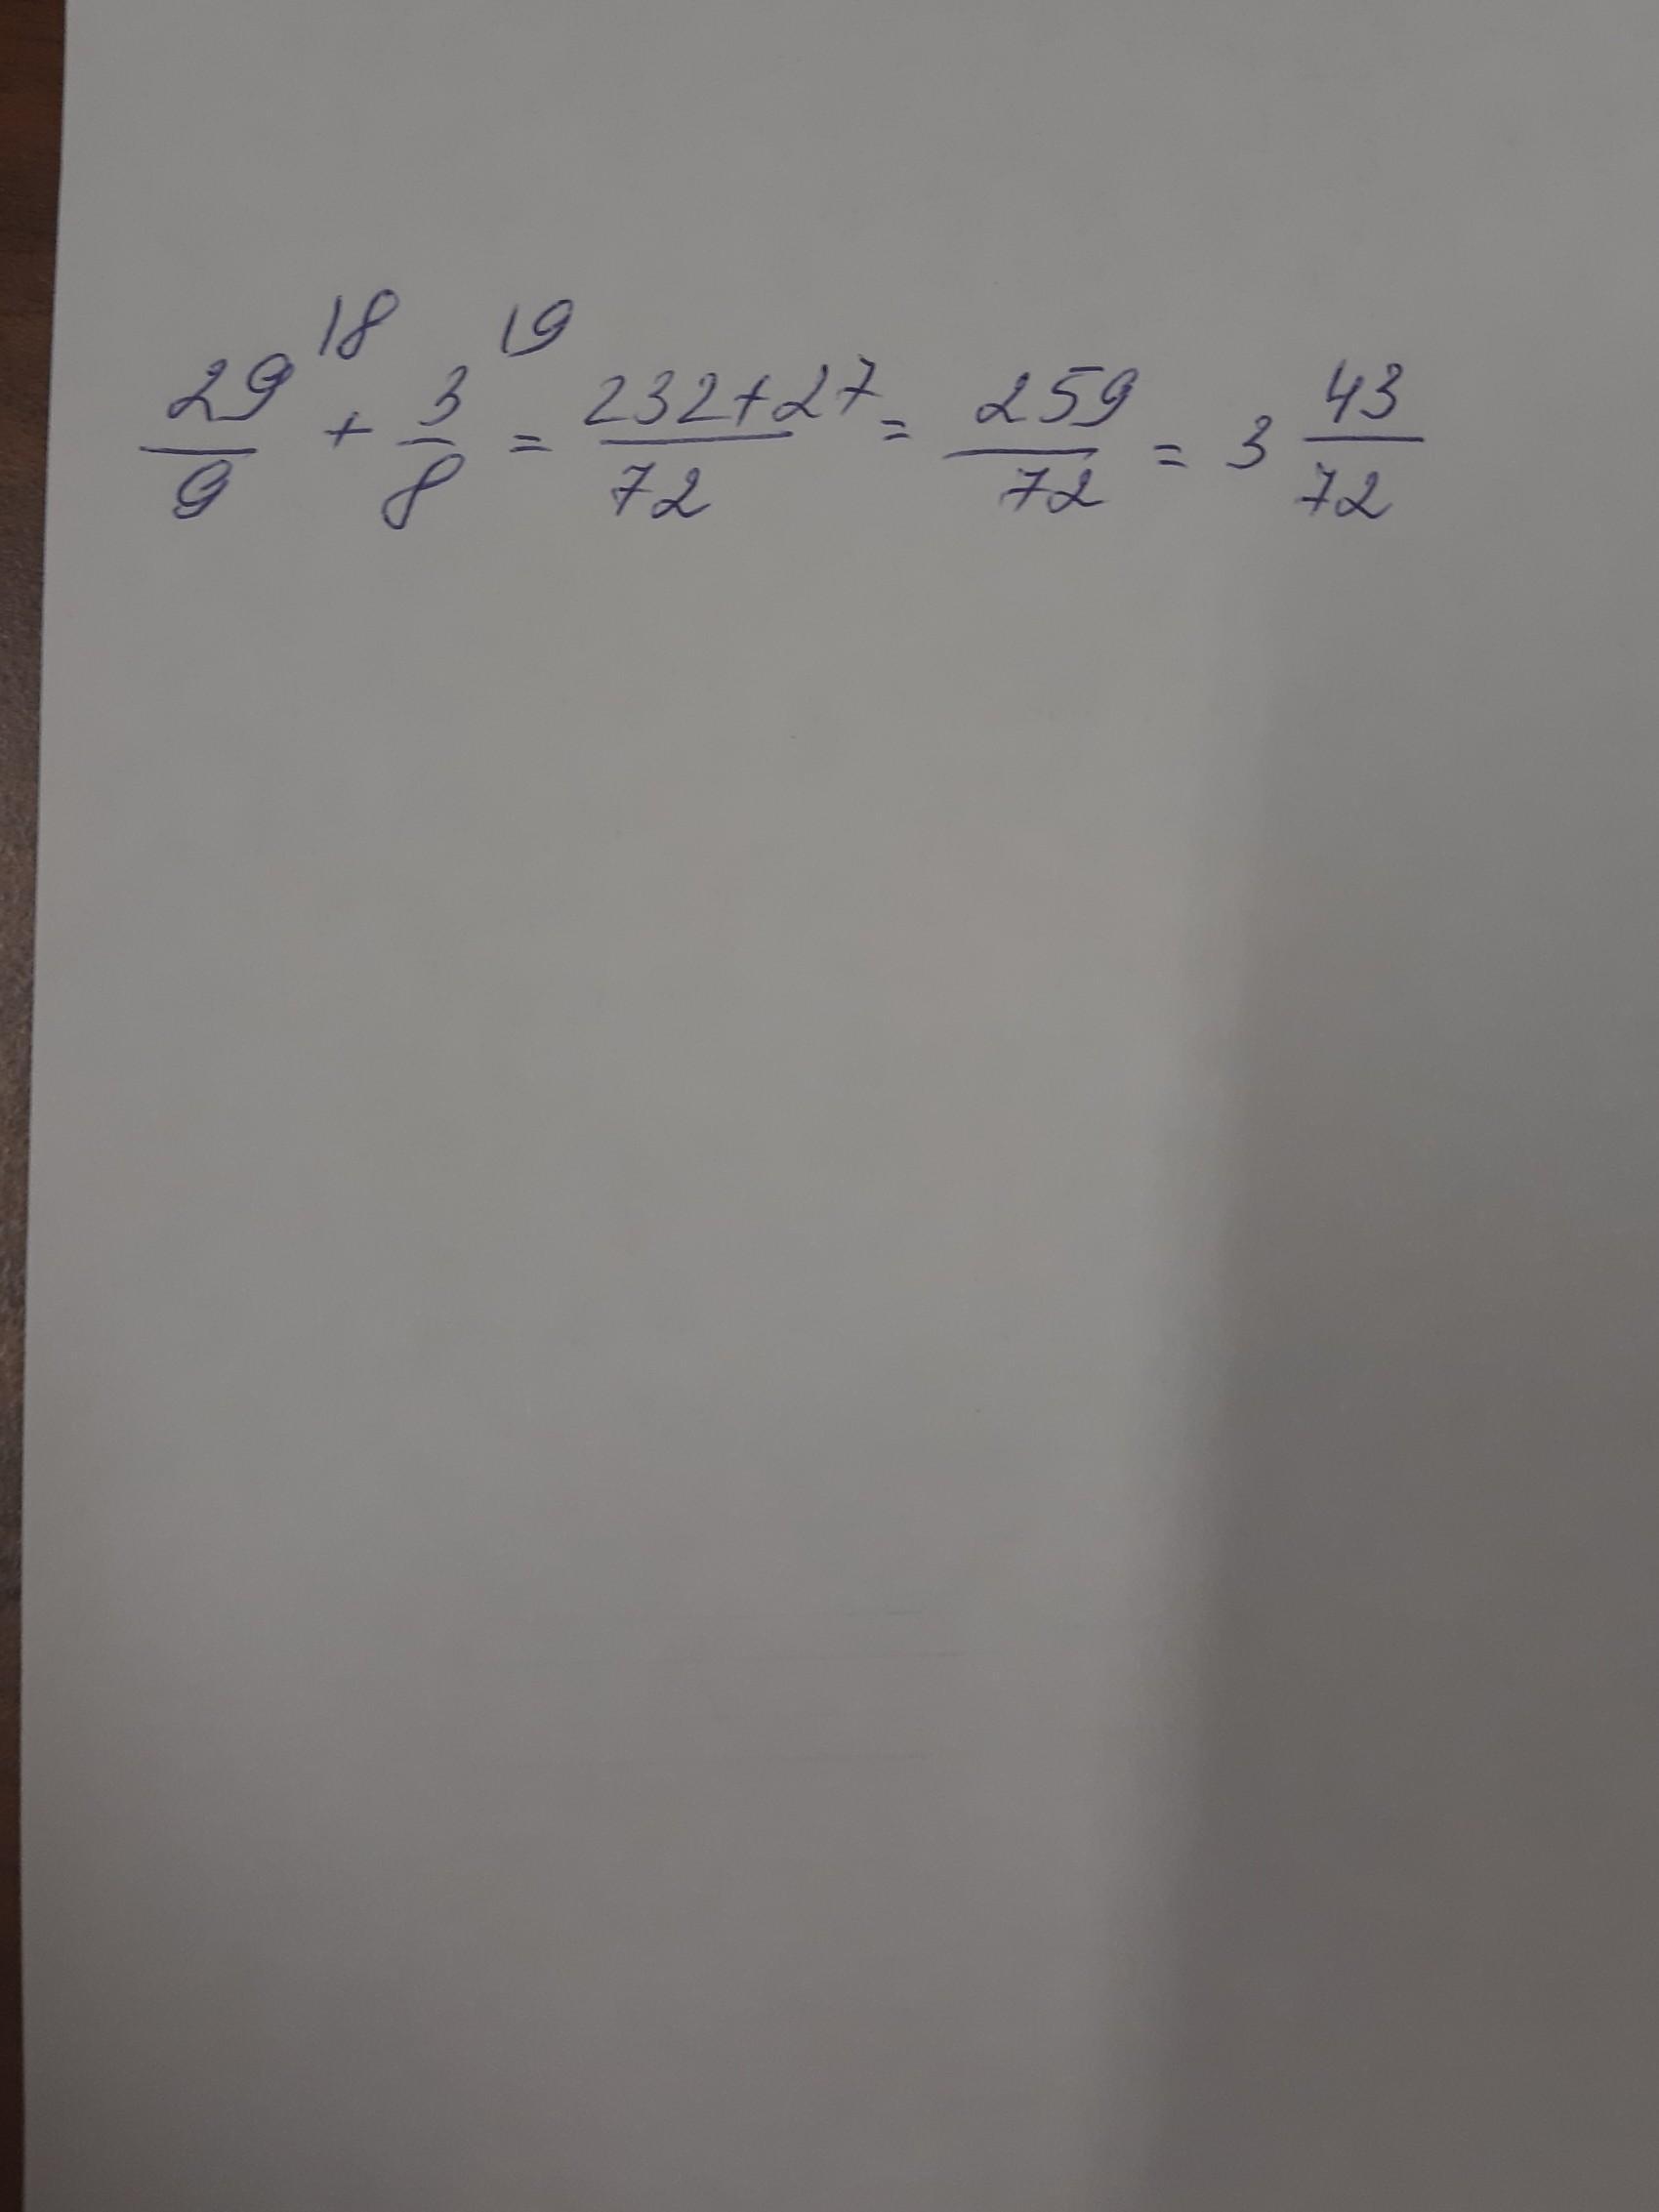 29/9 \8 + 3/8 \9 = 232+27/72 = 259/72 = 3 43/72